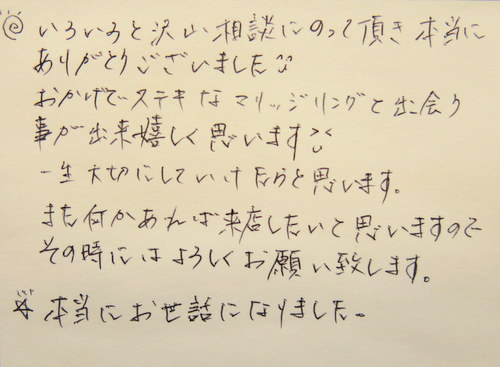 いろいろと沢山相談にのって頂き本当に
ありがとうございました
おかげでステキなマリッジリングと出会う
事が出来嬉しく思います
一生大切にしていけたらと思います。
また何かあれば来店したいと思いますので
その時にはよろしくお願い致します。
本当にお世話になりました。